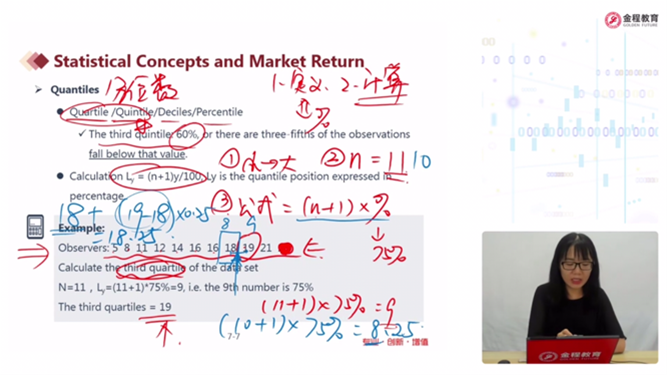 金程教育
GOLDEN FUTURE
Statistical Concepts and Market Return
Quantiles 分位数
1.定义、2.计算
%
Quartile /Quintile/Deciles/Percentile
The third quintile 60%, or there are three-fifths of the observations
fall below that value.
① 从小→大 ② n = 11 10
Calculation Ly = (n+1)y/100, Ly is the quantile position expressed in
percentage.
③ 公式 = (n+1)×%
75%
18 + (19-18)×0.25
= 18.25
Example:
8 9
Observers: 5 8 11 12 14 16 16 18 19 21
Calculate the third quartile of the data set
N=11 , Ly=(11+1)*75%=9, i.e. the 9th number is 75%
(11+1)×75% = 9
The third quartiles = 19
(10+1)×75% = 8.25
7-7
创新·增值